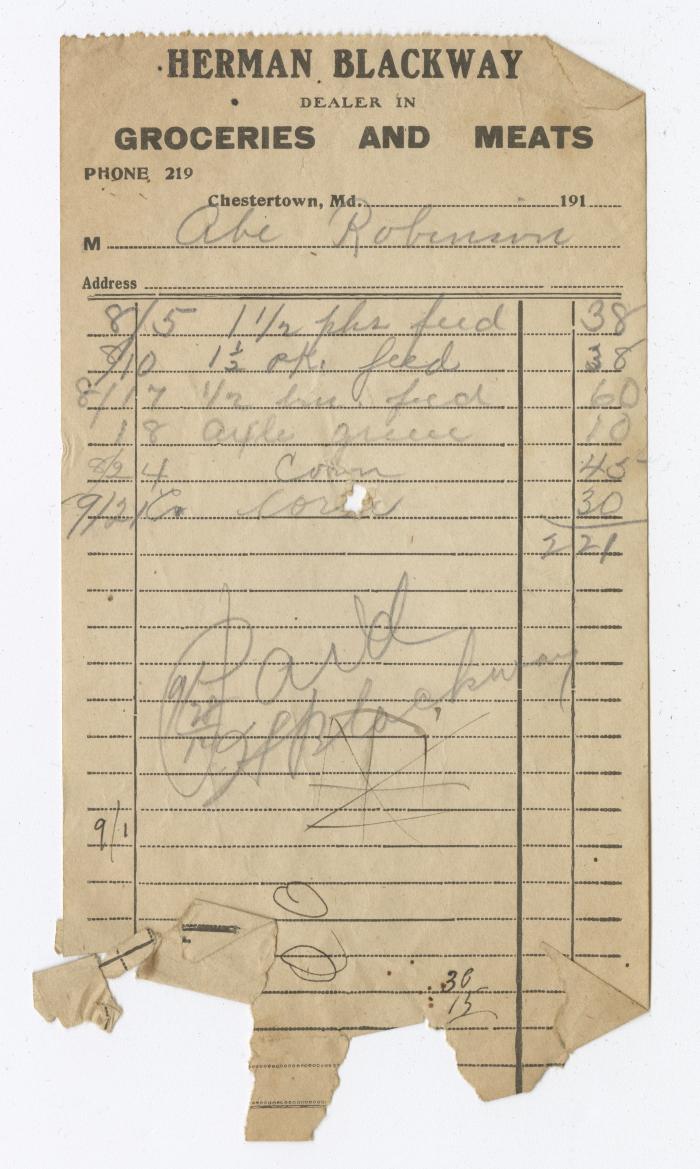 HERMAN BLACKWAY
DEALER IN
GROCERIES AND MEATS
PHONE 219
Chestertown, Md. 191
M Abe Robinson
Address
8/5 1 1/2 pks feed 38
8/10 1 1/2 pk. feed 38
8/17 1/2 bu. feed 60
18 axle grease 10
8/24 Corn 45
9/2 Corn 30
2 21
Paid
Blackway
9/1
30
15